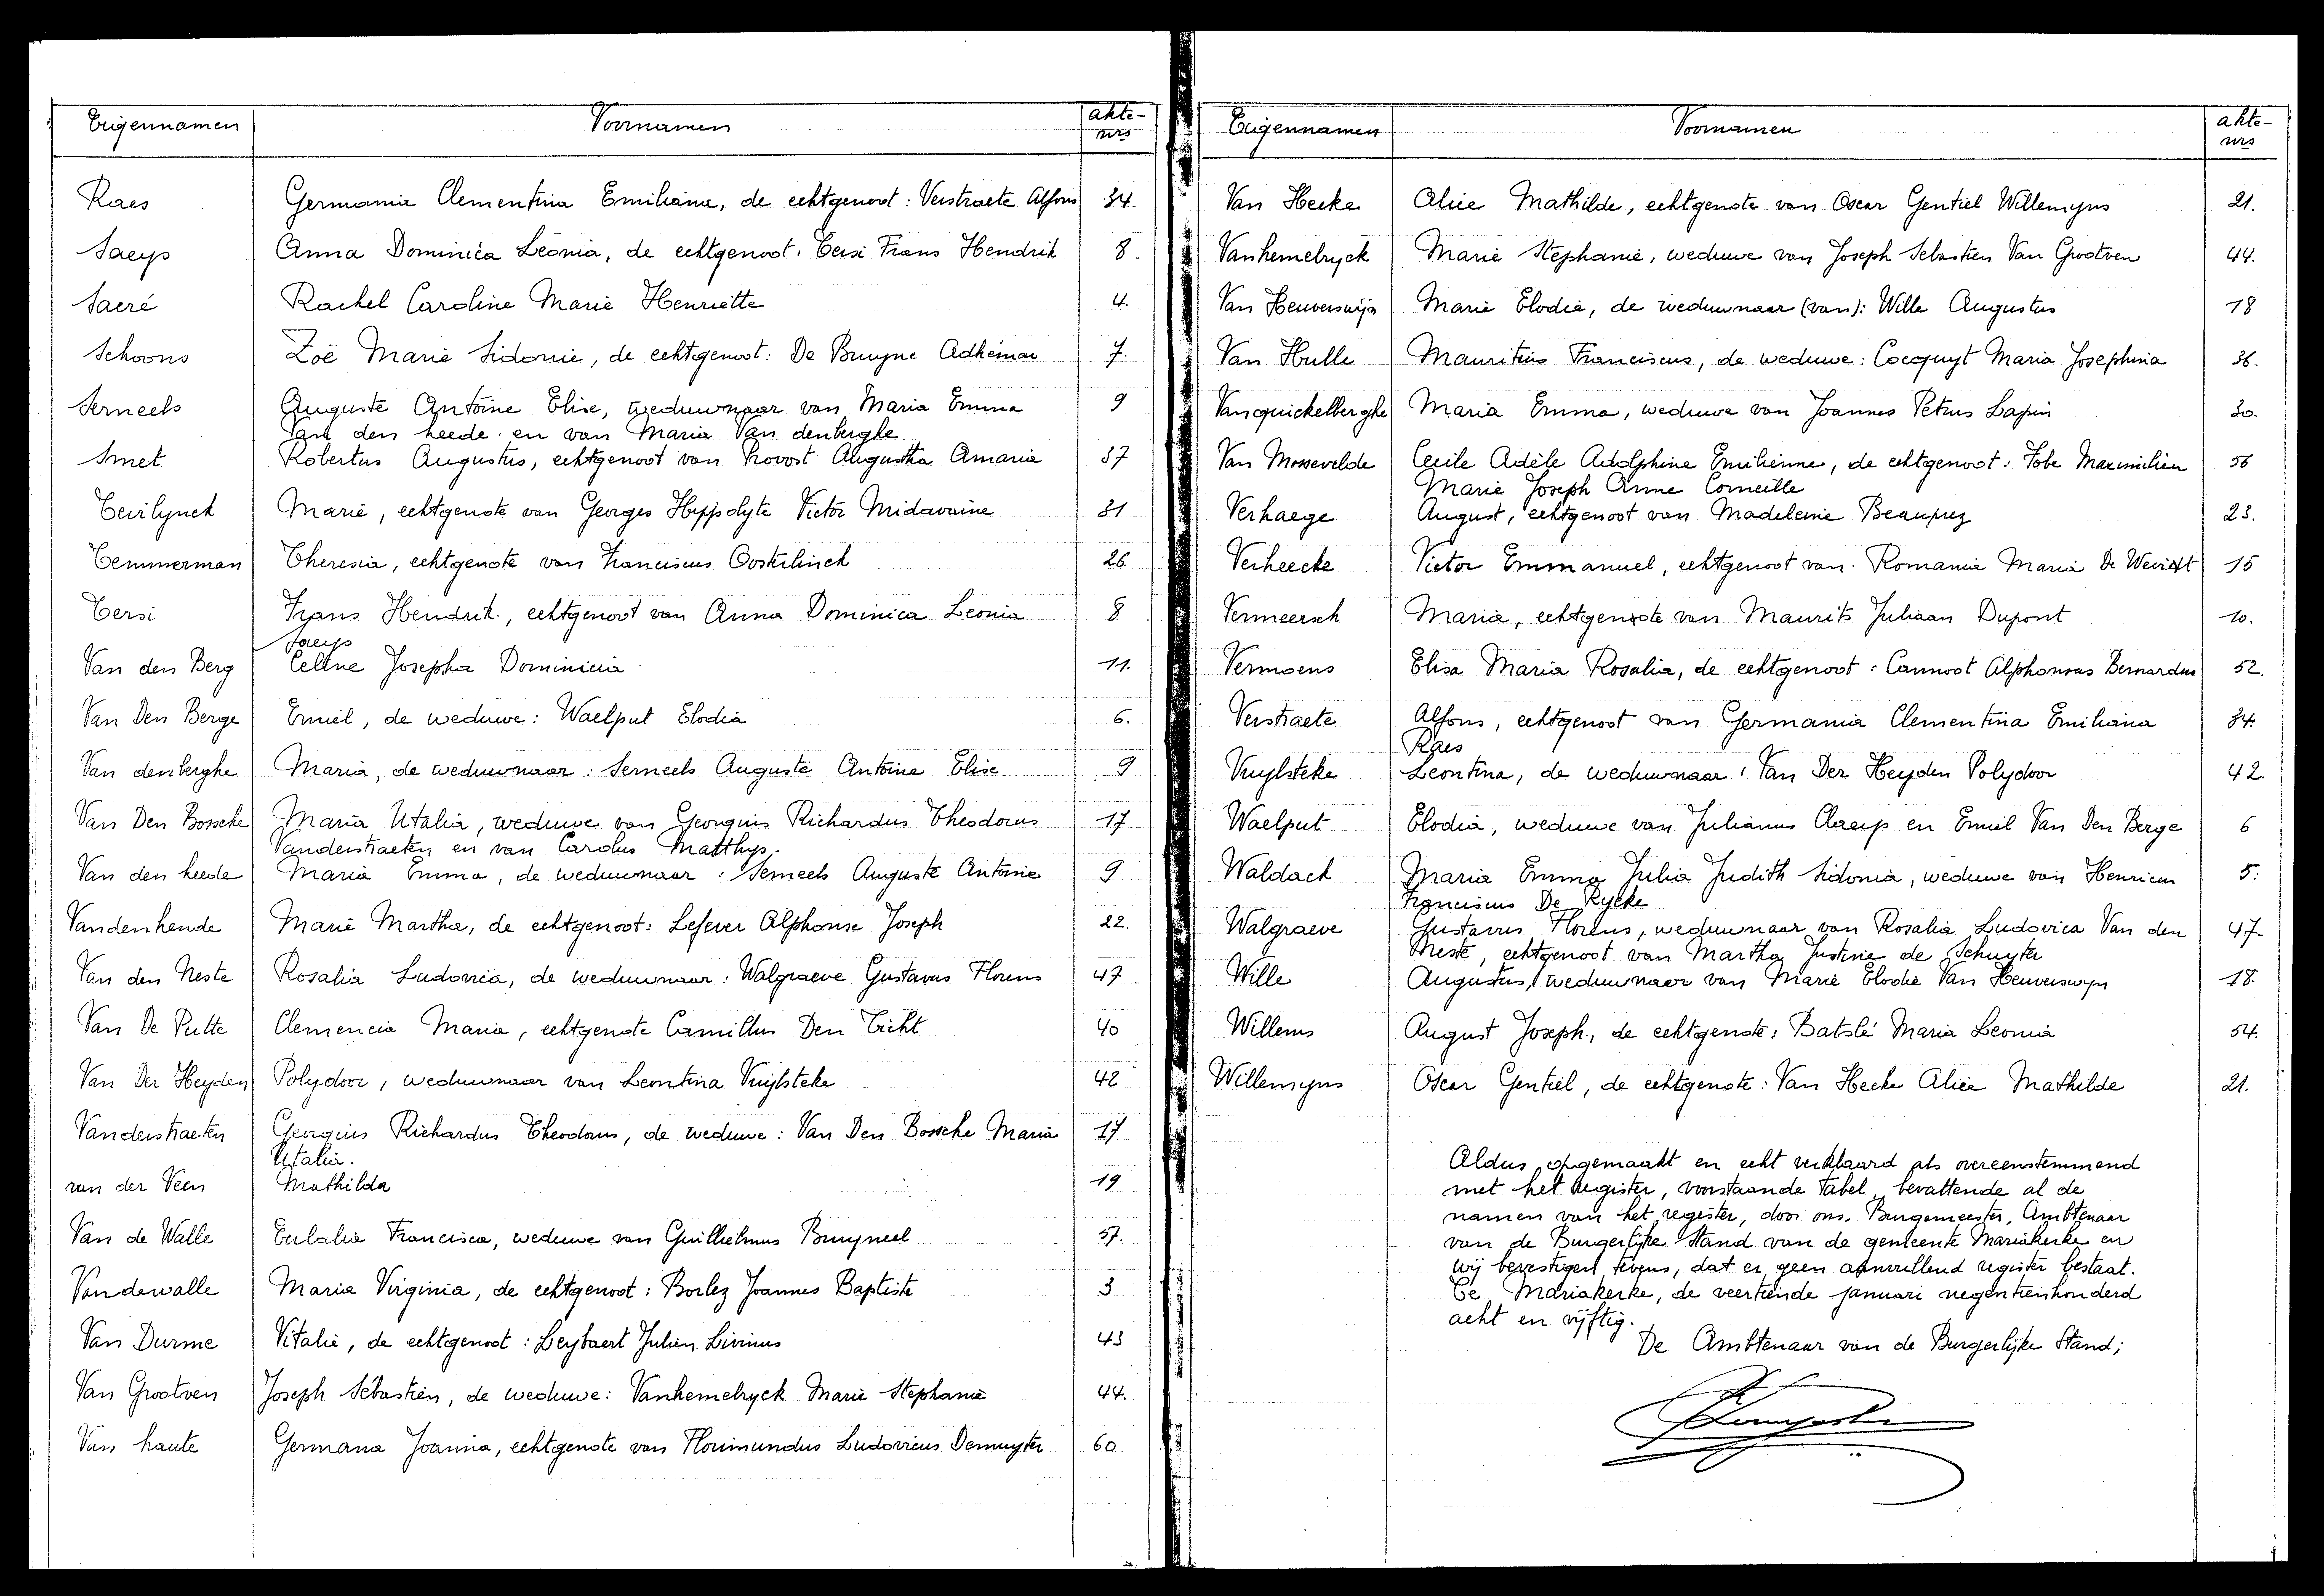 Eigennamen Voornamen akte-
nrs
Raes Germania Clementina Emiliana, de echtgenoot: Verstraete Alfons 34
Saeys Anna Dominica Leonia, de echtgenoot: Tersi Frans Hendrik 8
Saeré Rachel Caroline Marie Henriette 4.
Schoons Zoë Marie Sidonie, de echtgenoot: De Bruyne Adhémar 7.
Serneels Auguste Antoine Elise, weduwnaar van Maria Emma 9
Van den heede en van Maria Van denberghe
Smet Robertus Augustus, echtgenoot van Provost Augustha Amaria 37
Tevilynck Marie, echtgenote van Georges Hippolyte Victor Midavaine 31
Temmerman Theresia, echtgenote van Franciscus Oosterlinck 26
Tersi Frans Hendrik, echtgenoot van Anna Dominica Leonia 8
Saeys
Van den Berg Celine Josepha Dominicia 11.
Van Den Berge Emiel, de weduwe: Waelput Elodia 6.
Van denberghe Maria, de weduwnaar: Serneels Auguste Antoine Elise 9
Van Den Bossche Maria Utalia, weduwe van Georgius Richardus Theodorus 17
Vanderstraeten en van Carolus Matthys.
Van den heede Maria Emma, de weduwnaar: Serneels Auguste Antoine 9
Vandenhende Marie Martha, de echtgenoot: Lefever Alphonse Joseph 22.
Van den Neste Rosalia Ludovica, de weduwnaar: Walgraeve Gustavus Florens 47
Van De Putte Clemencia Maria, echtgenote Camillus Den Ticht 40
Van Der Heyden Polydoor, weduwnaar van Leontina Vuylsteke 42
Vanderstraeten Georgius Richardus Theodorus, de weduwe: Van Den Bossche Maria 17
Utalia.
van der Veen Mathilda 19
Van de Walle Eulalia Francisca, weduwe van Guilhelmus Bruyneel 57.
Vandewalle Maria Virginia, de echtgenoot: Borlez Joannes Baptiste 3
Van Durme Vitalie, de echtgenoot: Leybaert Julien Livinus 43
Van Grootven Joseph Sébastien, de weduwe: Vanhemelryck Marie Stephanie 44.
Van haute Germana Joanna, echtgenote van Florimundus Ludovicus Demuyter 60
Eigennamen Voornamen akte-
nrs
Van Hecke Alice Mathilde, echtgenote van Oscar Gentiel Willemyns 21.
Vanhemelryck Marie Stephanie, weduwe van Joseph Sebastien Van Grootven 44.
Van Heuverswijn Marie Elodie, de weduwnaar (van): Wille Augustus 18
Van Hulle Mauritius Franciscus, de weduwe: Cocquyt Maria Josephina 36.
Vanquickelberghe Maria Emma, weduwe van Joannes Petrus Lapin 30.
Van Mossevelde Cecile Adèle Adolphine Emilienne, de echtgenoot: Tobe Maximilien 56
Marie Joseph Anne Corneille
Verhaege August, echtgenoot van Madeleine Beauprez 23.
Verheecke Victor Emmanuel, echtgenoot van Romania Maria De Weirdt 15
Vermeersch Maria, echtgenote van Maurits Juliaan Dupont 10.
Vermoens Elisa Maria Rosalia, de echtgenoot: Cannoot Alphonsus Bernardus 52.
Verstraete Alfons, echtgenoot van Germania Clementina Emiliana 34.
Raes
Vuylsteke Leontina, de weduwnaar: Van Der Heyden Polydoor 42.
Waelput Elodia, weduwe van Julianus Claeys en Emiel Van Den Berge 6
Waldack Maria Emma Julia Judith Sidonia, weduwe van Henricus 5.
Franciscus De Rycke
Walgraeve Gustavus Florens, weduwnaar van Rosalia Ludovica Van den 47
Neste, echtgenoot van Martha Justine de Schuyter
Wille Augustus, weduwnaar van Marie Elodie Van Heuverswyn 18.
Willems August Joseph, de echtgenote: Batslé Maria Leonia 54.
Willemyns Oscar Gentiel, de echtgenote: Van Hecke Alice Mathilde 21.
Aldus opgemaakt en echt verklaard als overeenstemmend
met het Register, voorstaande Tabel, bevattende al de
namen van het register, door ons, Burgemeester, Ambtenaar
van de Burgerlijke Stand van de gemeente Mariakerke en
wij bevestigen tevens, dat er geen aanvullend register bestaat.
Te Mariakerke, de veertiende januari negentienhonderd
acht en vijftig.
De Ambtenaar van de Burgerlijke Stand;